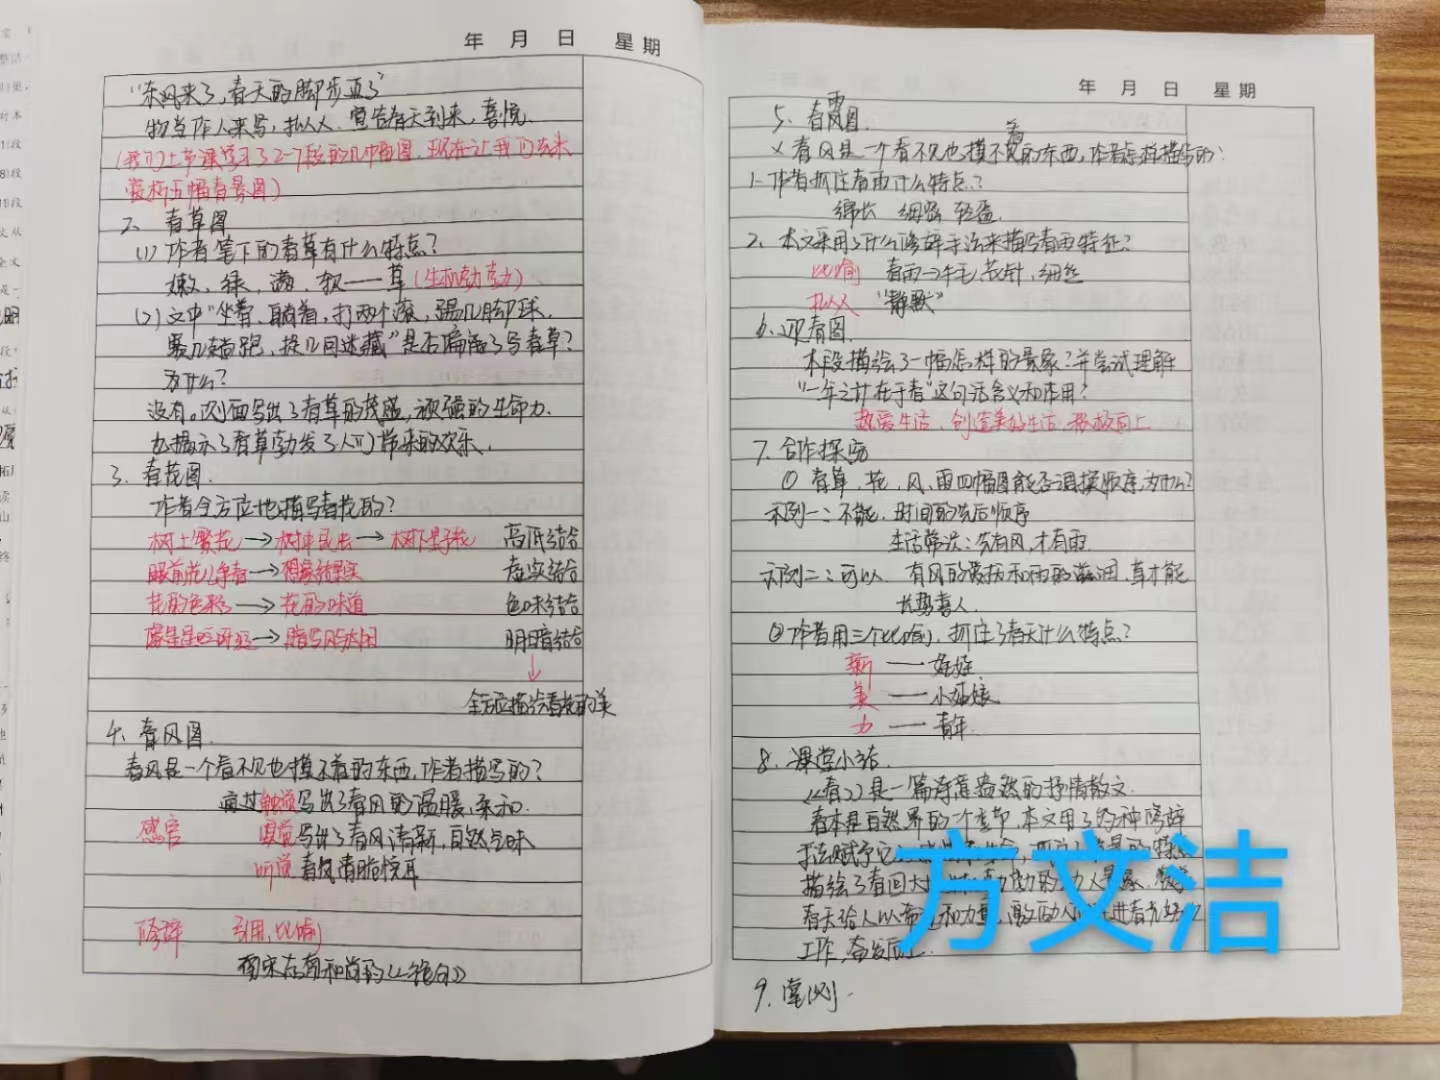 年 月 日 星期
“东风来了，春天的脚步近了”
物当作人来写，拟人，宣告春天到来，喜悦
(我们上节课学习了2-7段的几幅图，现在让我们去来
赏析五幅春景图)
2、春草图
(1)作者笔下的春草有什么特点？
嫩、绿、满、软——草(生机勃勃)
(2)文中“坐着、躺着，打两个滚，踢几脚球，
赛几趟跑，捉几回迷藏”是否偏离了写春草？
为什么？
没有。侧面写出了春草的茂盛，顽强的生命力
也揭示了春草勃发了人们带来的欢乐.
3、春花图.
作者全方位地描写春花的？
树上繁花→树中昆虫→树下野花 高低结合
眼前花儿争春→想象结果实 虚实结合
花的色彩→花的味道 色味结合
→ 明暗结合
↓
全方位描绘春花的美
4、春风图.
春风是一个看不见也摸不着的东西，作者描写的？
通过触觉写出了春风的温暖，柔和.
感官 嗅觉写出了春风清新，自然气味
听觉 春风清脆悦耳
修辞 引用，比喻
南宋志南和尚的《绝句》
年 月 日 星期
5、春雨图.
× 春风是一个看不见也摸不着的东西，作者怎样描写的：
1、作者抓住春雨什么特点？
绵长 细密 轻盈
2、本文采用了什么修辞手法来描写春雨特征？
比喻 春雨→牛毛，花针，细丝
拟人 “静默”
6、迎春图.
本段描绘了一幅怎样的景象？并尝试理解
“一年之计在于春”这句话含义和作用？
热爱生活，创造美好生活，积极向上
7、合作探究
① 春草，花，风，雨四幅图能否调换顺序，为什么？
示例一：不能，时间的先后顺序
生活常识：先有风，才有雨.
示例二：可以. 有风的吹拂和雨的滋润，草才能
长势喜人.
②作者用三个比喻，抓住了春天什么特点？
新——娃娃
美——小姑娘
力——青年
8、课堂小结.
《春》是一篇诗意盎然的抒情散文.
春本是自然界的一个季节，本文用了多种修辞
手法赋予它
描绘了春回大地 动人景象，
春天给人以希望和力量，激励人 进
工作，奋发向上.
9、堂测.
方文洁